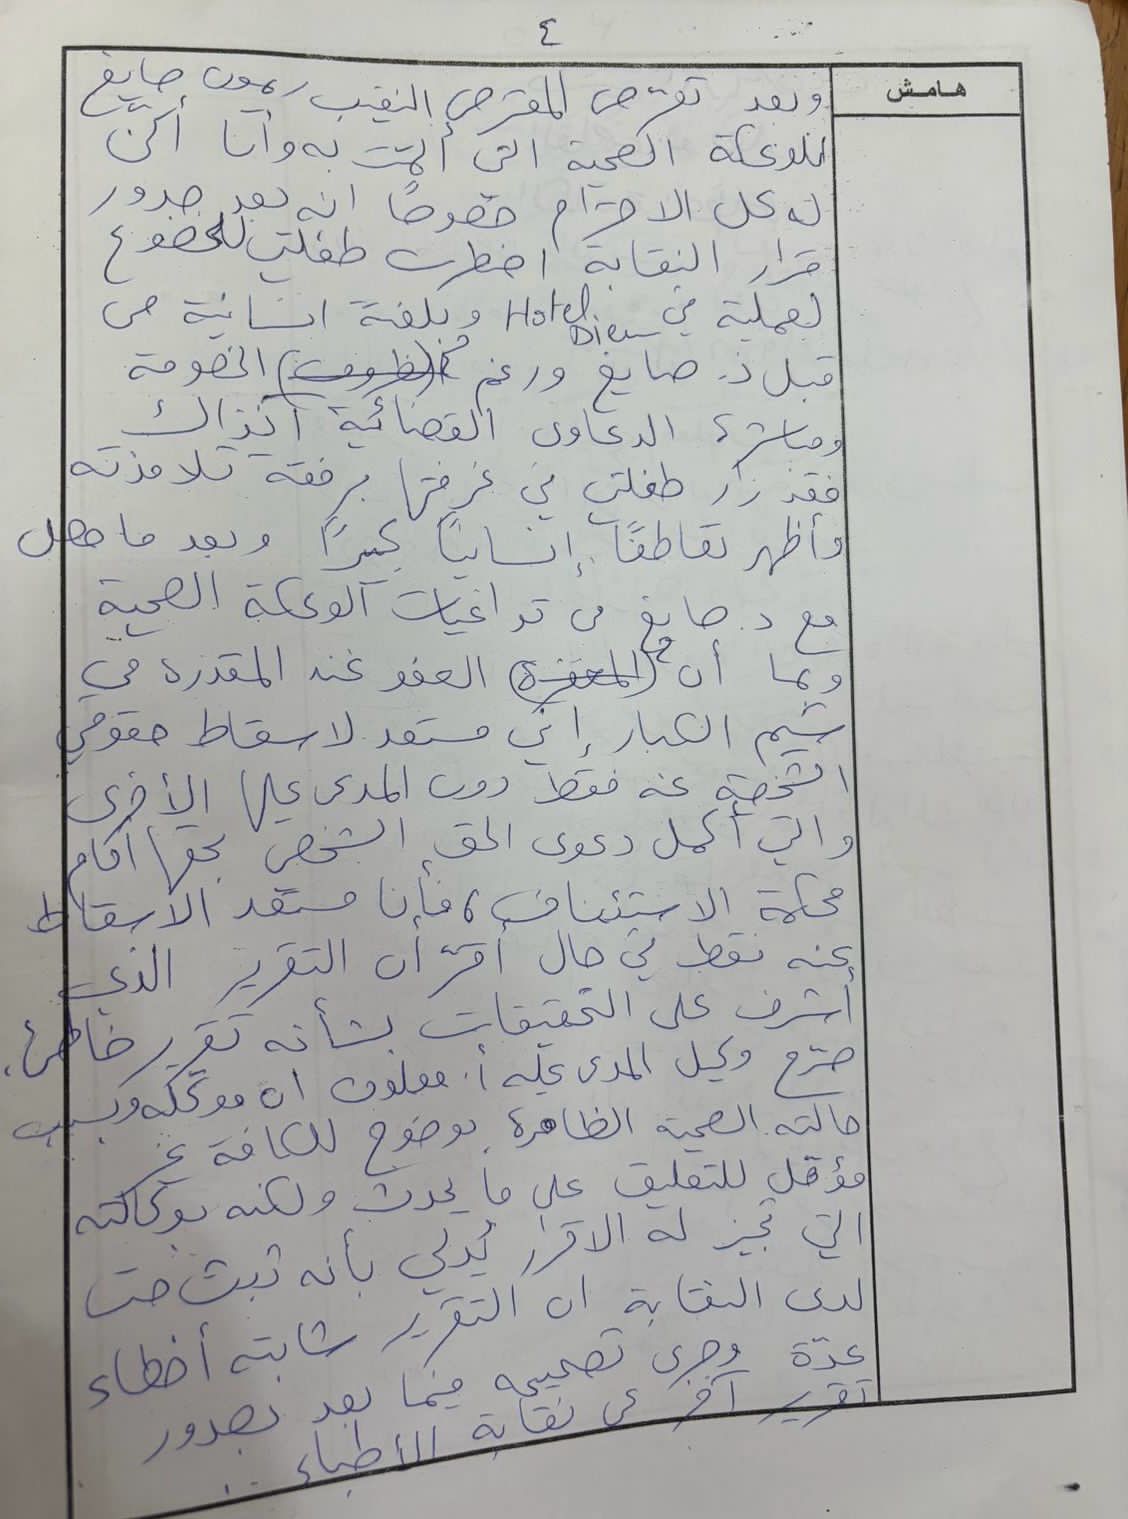 ٤
هامش
وبعد تعرّض المعترض النقيب ريمون صايغ
للوعكة الصحية التي ألمّت به وأنا أكنّ
له كل الاحترام خصوصًا انه بعد صدور
قرار النقابة اضطرت طفلتي للخضوع
لعملية في Hotel Dieu وبلفتة انسانية من
قبل د. صايغ ورغم (ظروف) الخصومة
ومباشرة الدعاوى القضائية آنذاك
فقد زار طفلتي في غرفتها برفقة تلامذته
وأظهر تعاطفًا إنسانيًا كبيرًا وبعد ما حصل
مع د. صايغ من تداعيات الوعكة الصحية
وبما أن (المغفرة) العفو عند المقدرة من
شيم الكبار إني مستعد لاسقاط حقوقي
الشخصية عنه فقط دون المدعى عليها الأخرى
والتي أكمل دعوى الحق الشخصي بحقها أمام
محكمة الاستئناف، فأنا مستعد الاسقاط
عنه فقط في حال أقرّ أن التقرير الذي
أشرف على التحقيقات بشأنه تقرير خاطئ.
صرّح وكيل المدعى عليه أ. معلوف ان موكله وبسبب
حالته الصحية الظاهرة بوضوح للكافة غير
مؤهل للتعليق على ما يحدث ولكنه بوكالته
التي تجيز له الاقرار يُدلي بأنه ثبت حتى
لدى النقابة ان التقرير شابته أخطاء
عدّة وجرى تصحيحه فيما بعد بصدور
تقرير آخر عن نقابة الأطباء ..